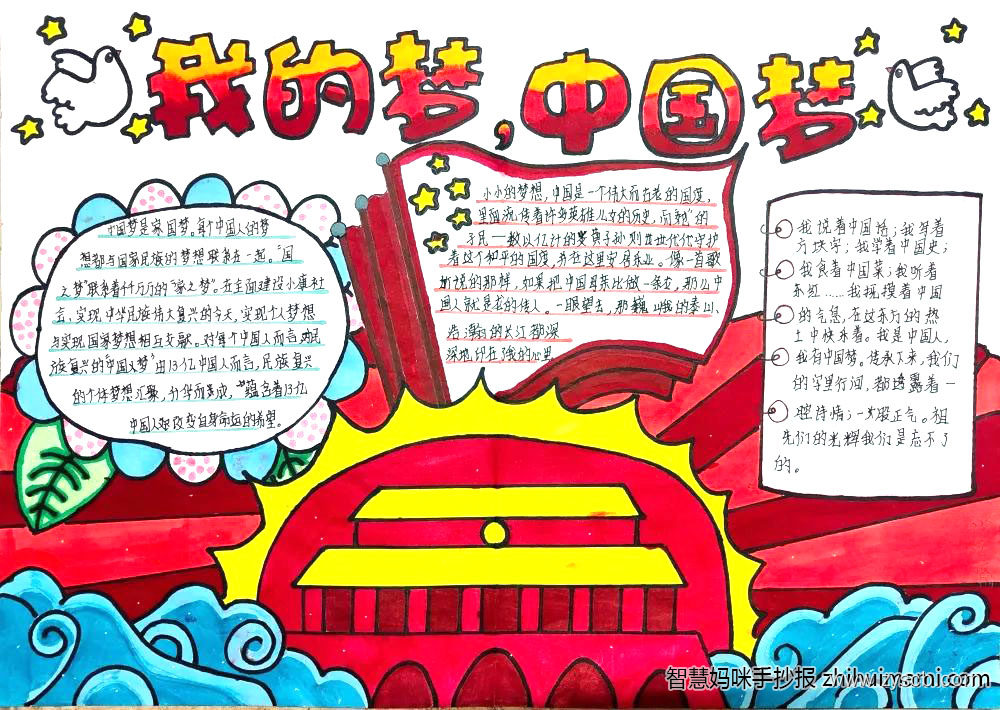 我的梦,中国梦
中国梦是家国梦。每个中国人的梦
想都与国家民族的梦想联系在一起。“国
之梦”联系着千千万万的“家之梦”。在全面建设小康社
会,实现中华民族伟大复兴的今天,实现个人梦想
与实现国家梦想相互交融。对每个中国人而言,如民
族复兴的“中国人梦”由13亿中国人而言,民族复兴
的个体梦想汇聚,升华而成,蕴含着13亿
中国人想改变自身命运的希望。
小小的梦想,中国是一个伟大而古老的国度,
里面流传着许多英雄儿女的历史,而勤的
子民一数以亿计的炎黄子孙则世世代代守护
着这个和平的国度,并在这里安居乐业。像一首歌
所说的那样,如果把中国母亲比做一条龙,那么中
国人就是龙的传人。一眼望去,那巍峨的泰山、
浩瀚的长江都深
深地印在我的心里
我说着中国话;我写着
方块字;我学着中国史;
我食着中国菜;我听着
东红......我抚摸着中国
的气息,在这东方的热
土中快乐着。我是中国人,
我有中国梦。传承下来,我们
的字里行间,都透露着一
股诗情;一股正气。祖
先们的光辉我们是忘不了
的。
智慧妈咪手抄报 zhihuizysoni.com